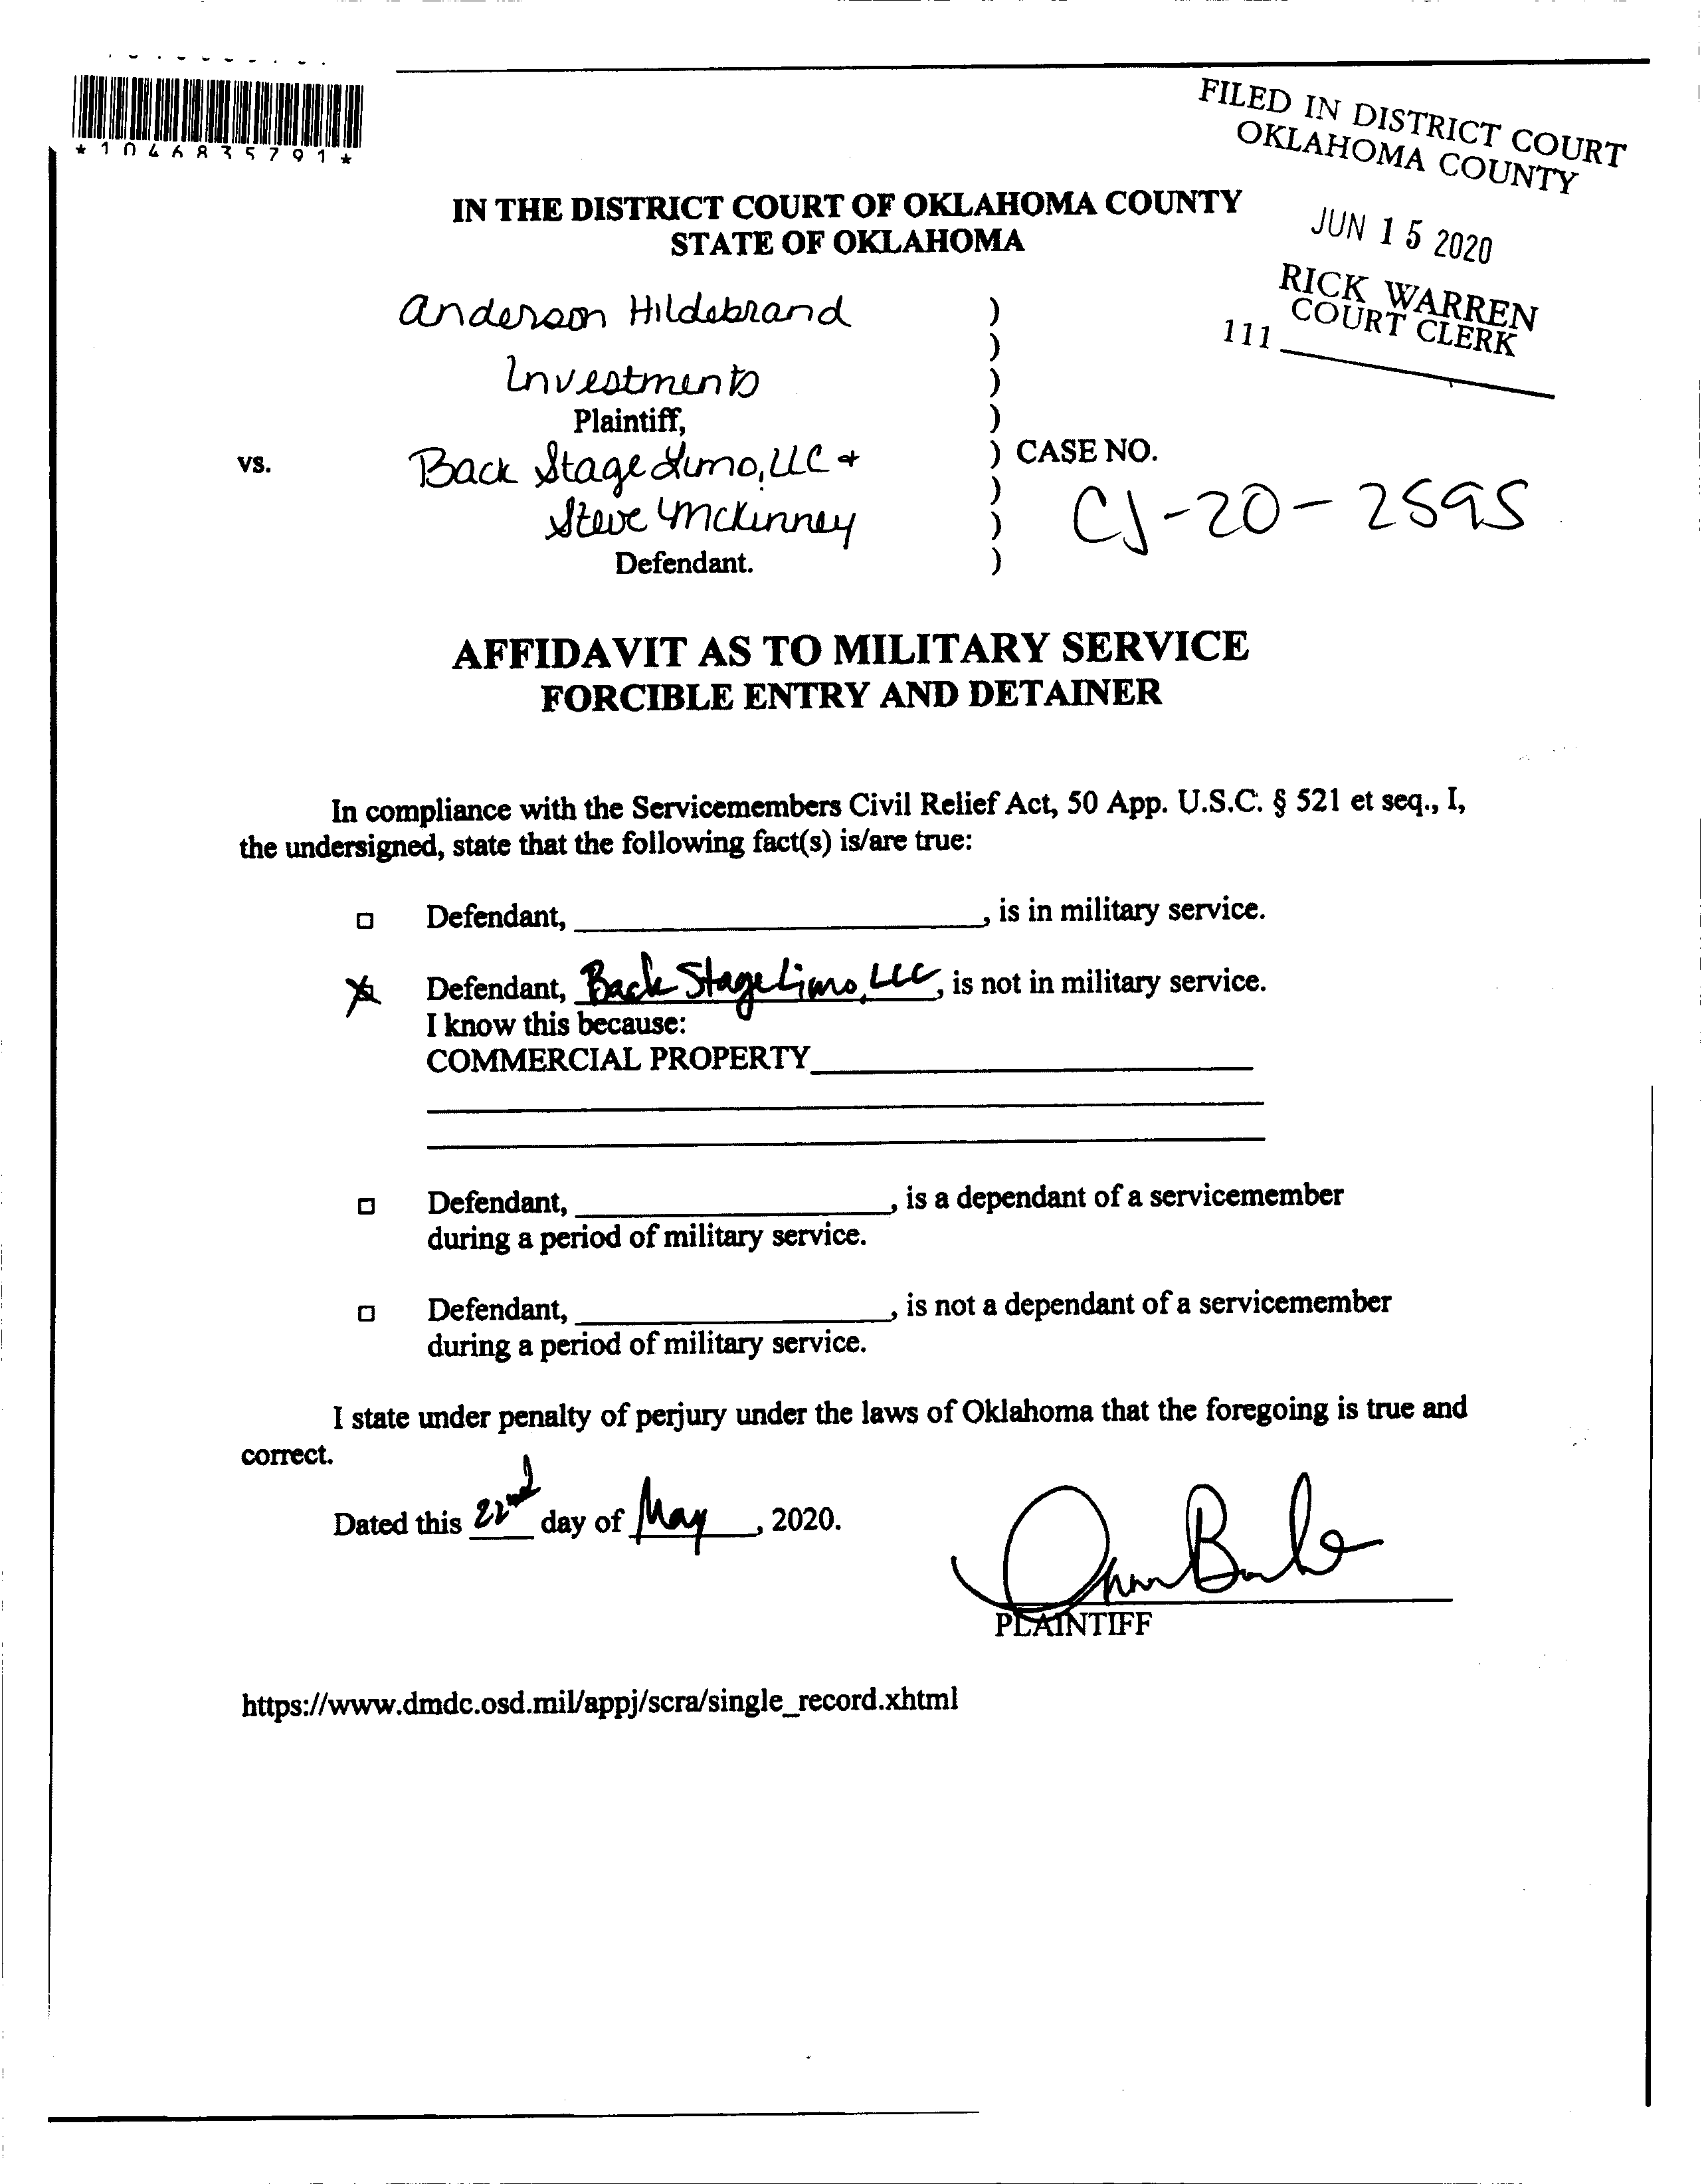 *1046835791*
FILED IN DISTRICT COURT
OKLAHOMA COUNTY
JUN 15 2020
RICK WARREN
COURT CLERK
111
IN THE DISTRICT COURT OF OKLAHOMA COUNTY
STATE OF OKLAHOMA
Anderson Hildebrand )
)
Investments )
Plaintiff, )
vs. Back Stage Limo, LLC + ) CASE NO.
)
Steve McKinney ) CJ-20-2595
Defendant. )
AFFIDAVIT AS TO MILITARY SERVICE
FORCIBLE ENTRY AND DETAINER
In compliance with the Servicemembers Civil Relief Act, 50 App. U.S.C. § 521 et seq., I,
the undersigned, state that the following fact(s) is/are true:
□ Defendant, ____________________, is in military service.
X Defendant, Back Stage Limo, LLC, is not in military service.
I know this because:
COMMERCIAL PROPERTY____________________
□ Defendant, ____________________, is a dependant of a servicemember
during a period of military service.
□ Defendant, ____________________, is not a dependant of a servicemember
during a period of military service.
I state under penalty of perjury under the laws of Oklahoma that the foregoing is true and
correct.
Dated this 22nd day of May, 2020.
PLAINTIFF
https://www.dmdc.osd.mil/appj/scra/single_record.xhtml